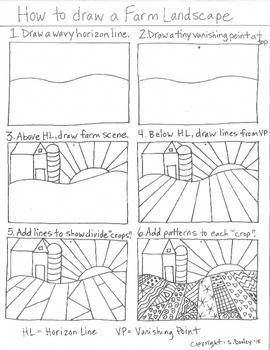 How to draw a Farm Landscape
1. Draw a wavy horizon line.
2. Draw a tiny vanishing point at top
3. Above HL, draw farm scene.
4. Below HL, draw lines from VP
5. Add lines to show divide "crops".
6. Add patterns to each "crop".
HL = Horizon Line VP = Vanishing Point
Copyright: S. Dooley '15